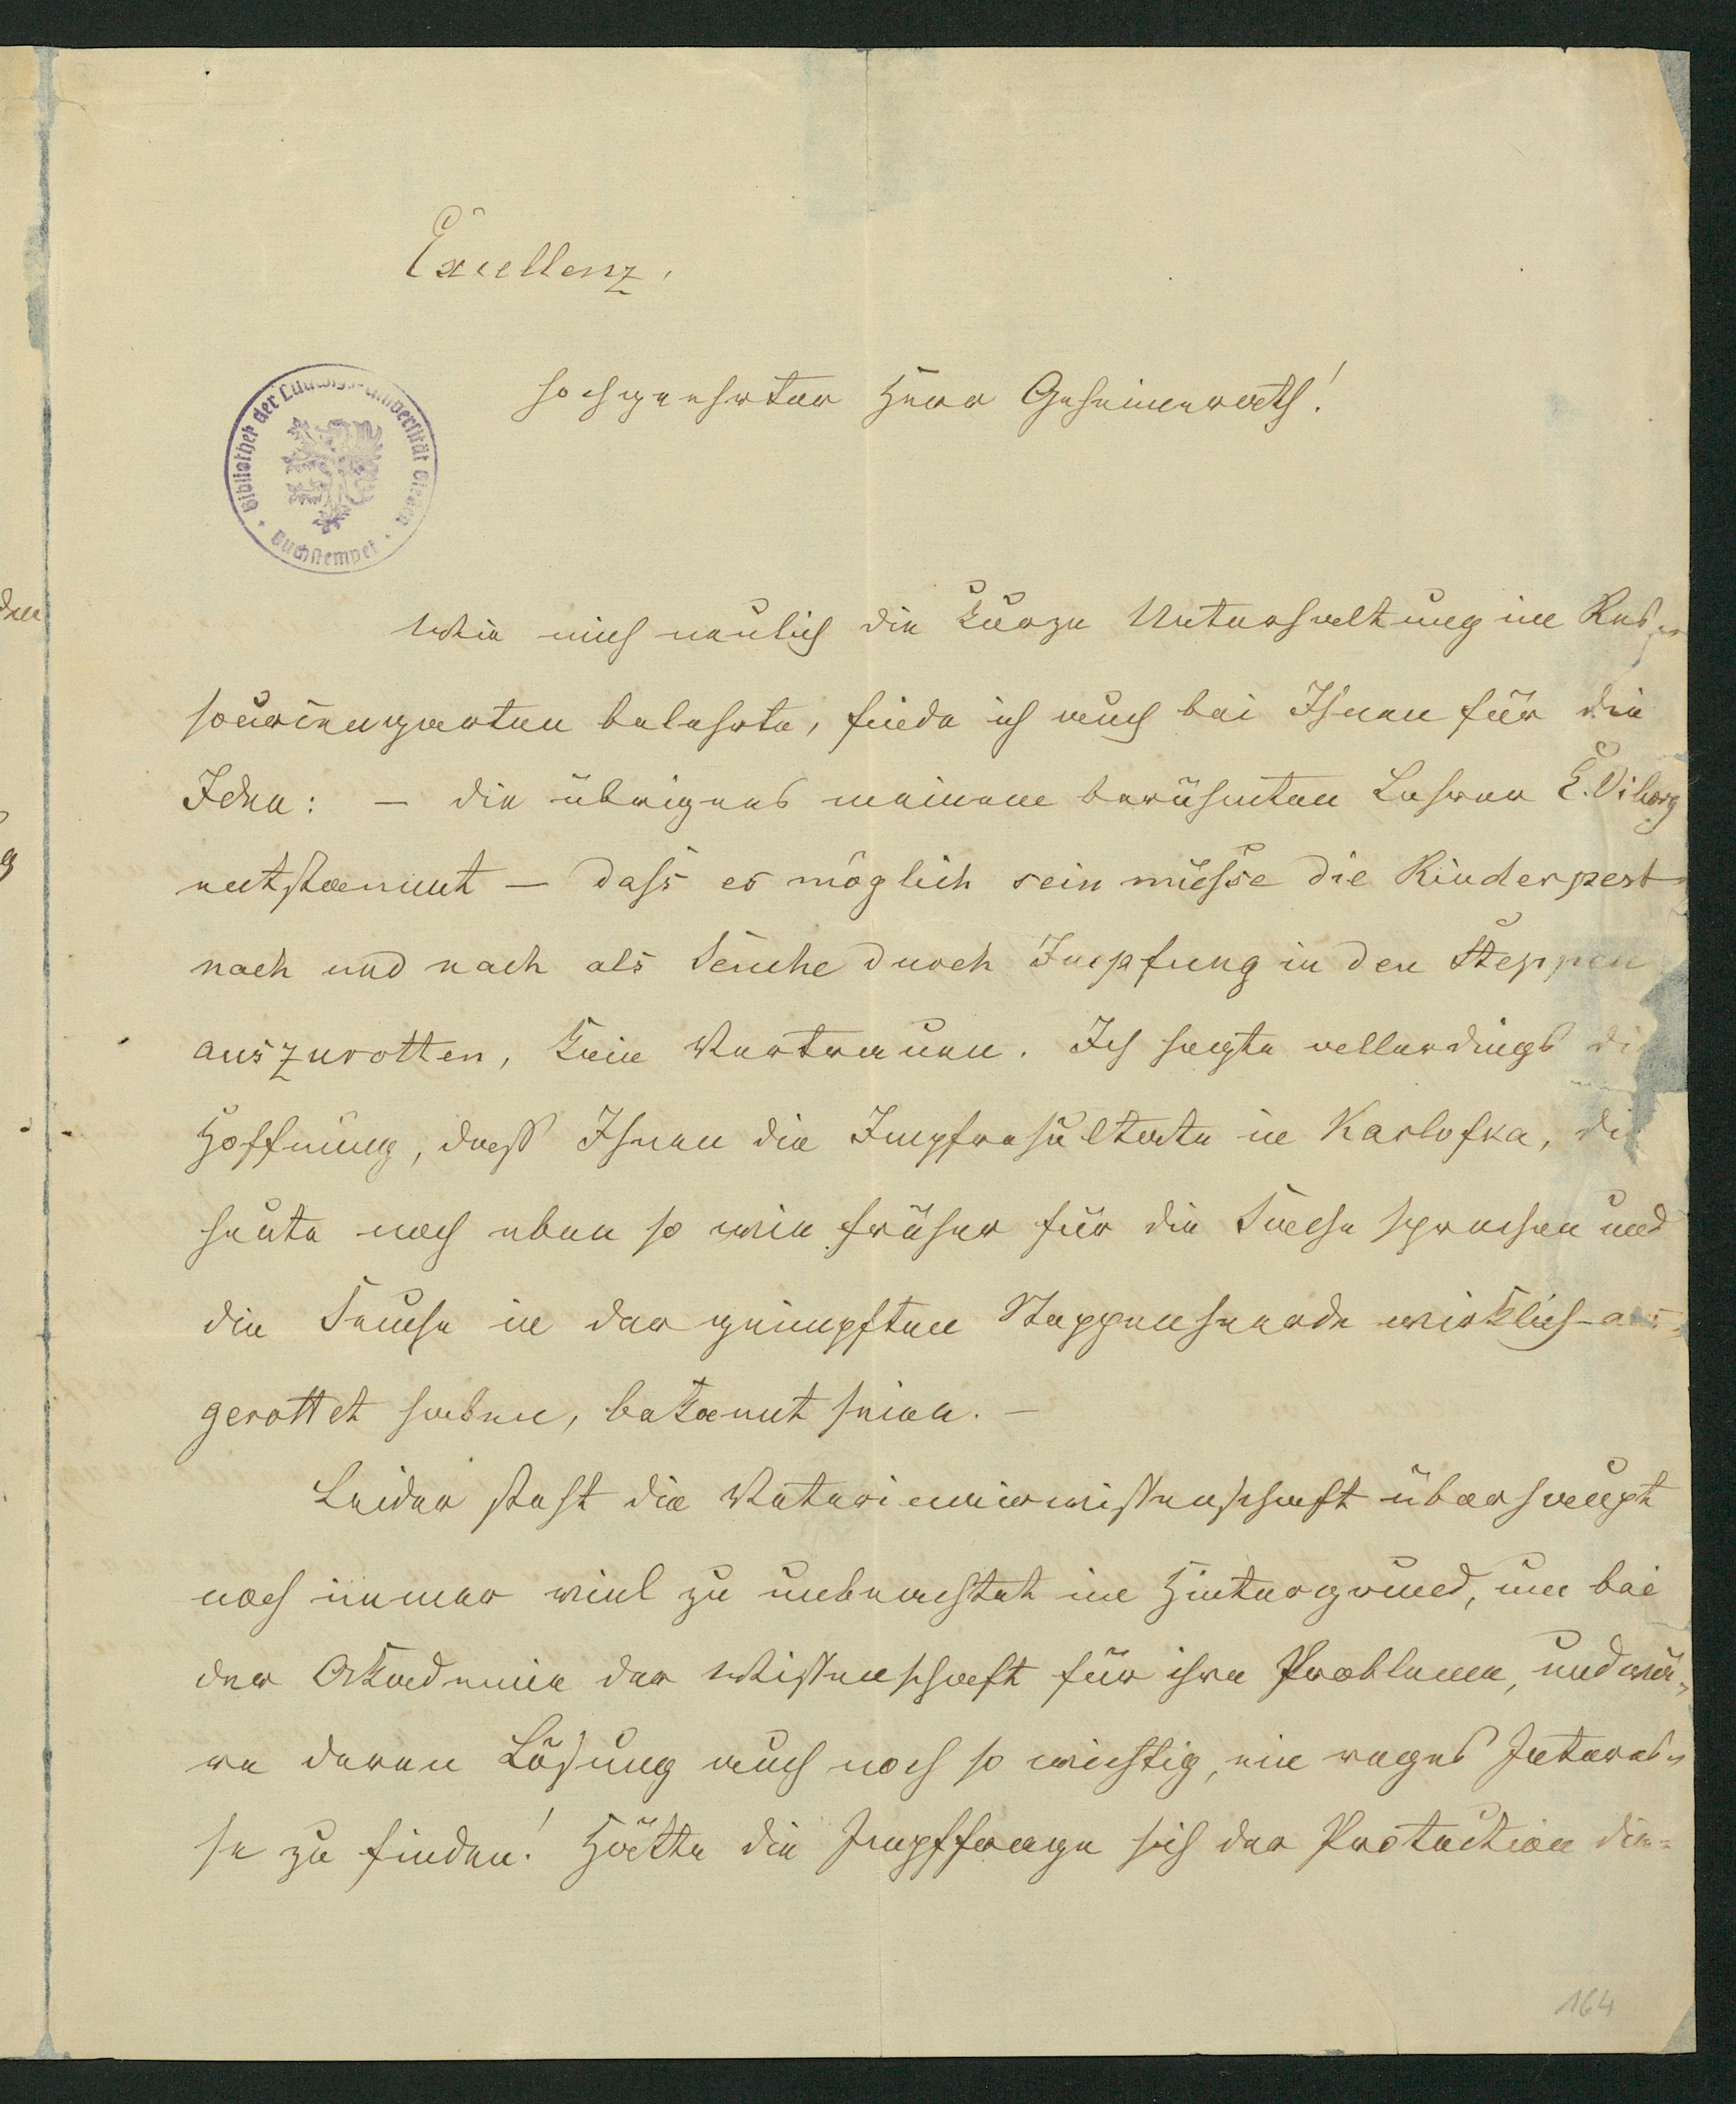 Excellenz,
hochgeehrter Herr Geheimerath!
Bibliothek der Ludwigs-Universität Giessen
Buchstempel
Wie mich neulich die kurze Unterhaltung im Res-
sourcengarten belehrte, finde ich auch bei Ihnen für die
Idee: — die übrigens meinem berühmten Lehrer E. Viborg
entstammt — dass es möglich sein müsse die Rinderpest
nach und nach als Seuche durch Impfung in den Steppen
auszurotten, kein Vertrauen. Ich hegte allerdings die
Hoffnung, daß Ihnen die Impfresultate in Karlofka, die
heute noch eben so wie früher für die Sache sprechen und
die Seuche in der geimpften Steppenheerde wirklich aus-
gerottet haben, bekannt seien. —
Leider steht die Veterinairwissenschaft überhaupt
noch immer viel zu unbeachtet im Hintergrund, um bei
der Akademie der Wissenschaft für ihre Probleme, und wä-
re deren Lösung auch noch so wichtig, ein reges Interes-
se zu finden! Hätte die Impffrage sich der Protection die-
164
den
g